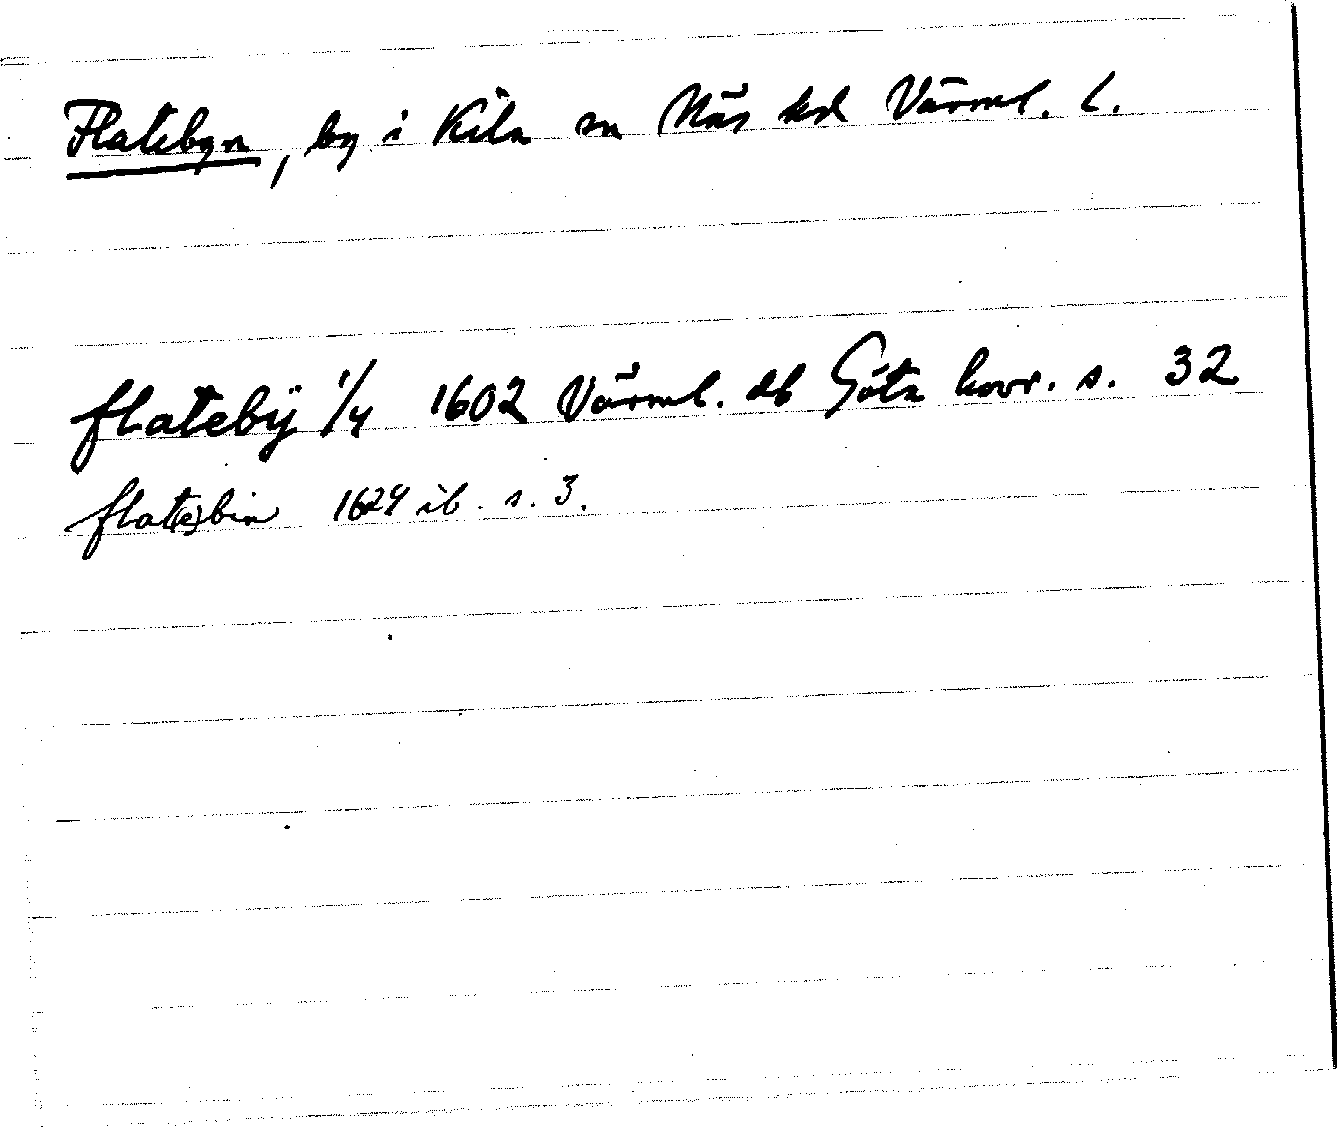 Flatebyn, by i Kila sn Näs hd Värml. l.
flatebÿ 1/4 1602 Värml. db Göta hovr. s. 32
flat(e)bin 1624 ib. s. 3.